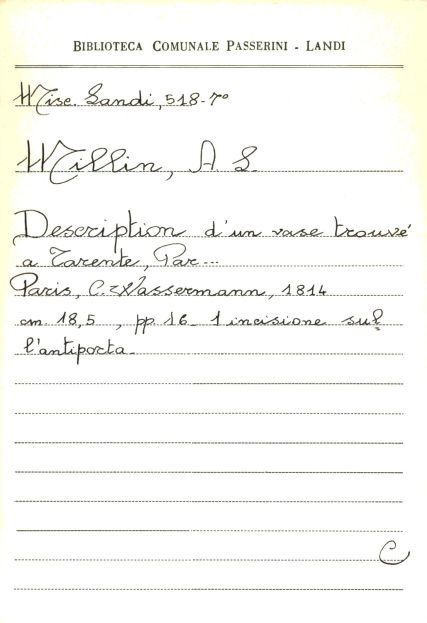 BIBLIOTECA COMUNALE PASSERINI - LANDI
Misc. Landi, 518-7°
Millin, A. L.
Description d'un vase trouvé
a Tarente, Par...
Paris, C. Wassermann, 1814
cm. 18,5, pp. 16 - 1 incisione sul
l'antiporta.
C